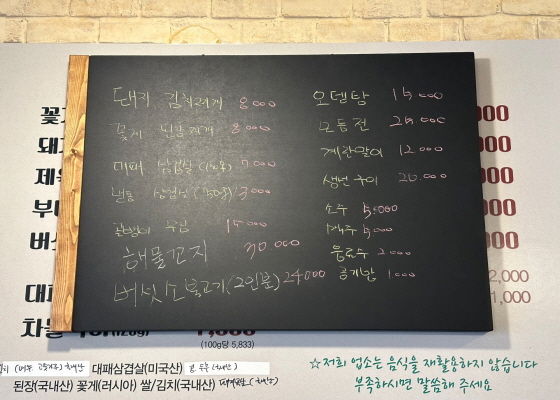 돼지 김치찌개 8000
꽃게 된장찌개 8000
대패 삼겹살 7000
냉동 삼겹살 13000
골뱅이 무침 15000
해물꼬지 30000
버섯소불고기(2인분) 24000
오뎅탕 15000
모듬전 25000
계란말이 12000
생선구이 20000
소주 5000
맥주 5000
음료수 2000
공기밥 1000
꽃
돼
제육
부대
버섯
대패
000
000
000
000
000
2,000
1,000
(100g당 5,833)
대패삼겹살(미국산)
된장(국내산) 꽃게(러시아) 쌀/김치(국내산)
☆저희 업소는 음식을 재활용하지 않습니다
부족하시면 말씀해 주세요